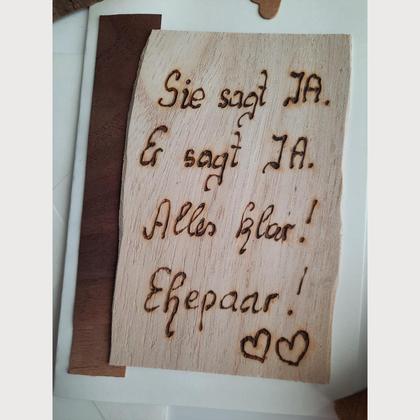 Sie sagt JA.
Er sagt JA.
Alles klar!
Ehepaar!